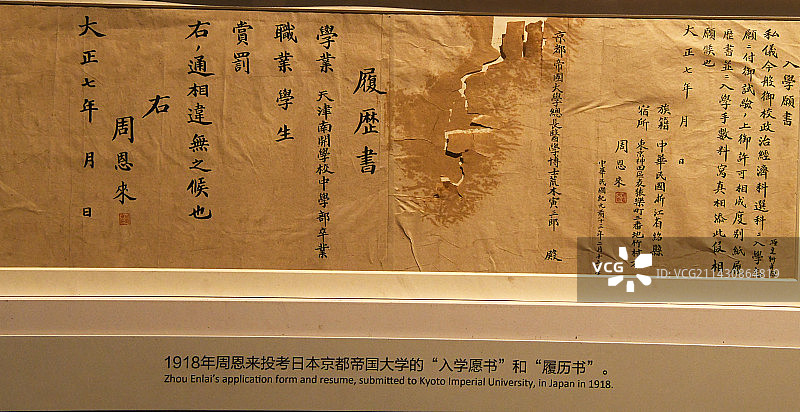 入學願書
私儀今般御校政治經濟科選科ニ入學
願ニ付御試驗ノ上御許可相成度別紙履
歴書並ニ入學手數料寫真相添此段相
願候也
大正七年 月 日
族籍 中華民國浙江省紹縣
宿所 東京神田區表猿樂町三番地竹村
周恩來
中華民國紀元前十三年二月十
京都帝國大學總長醫學博士荒木寅三郎 殿
履歴書
學業 天津南開學校中學部卒業
職業 學生
賞罰
右ノ通相違無之候也
右
周恩來
大正七年 月 日
VCG
VCG211430864819
1918年周恩来投考日本京都帝国大学的“入学愿书”和“履历书”。
Zhou Enlai's application form and resume, submitted to Kyoto Imperial University, in Japan in 1918.